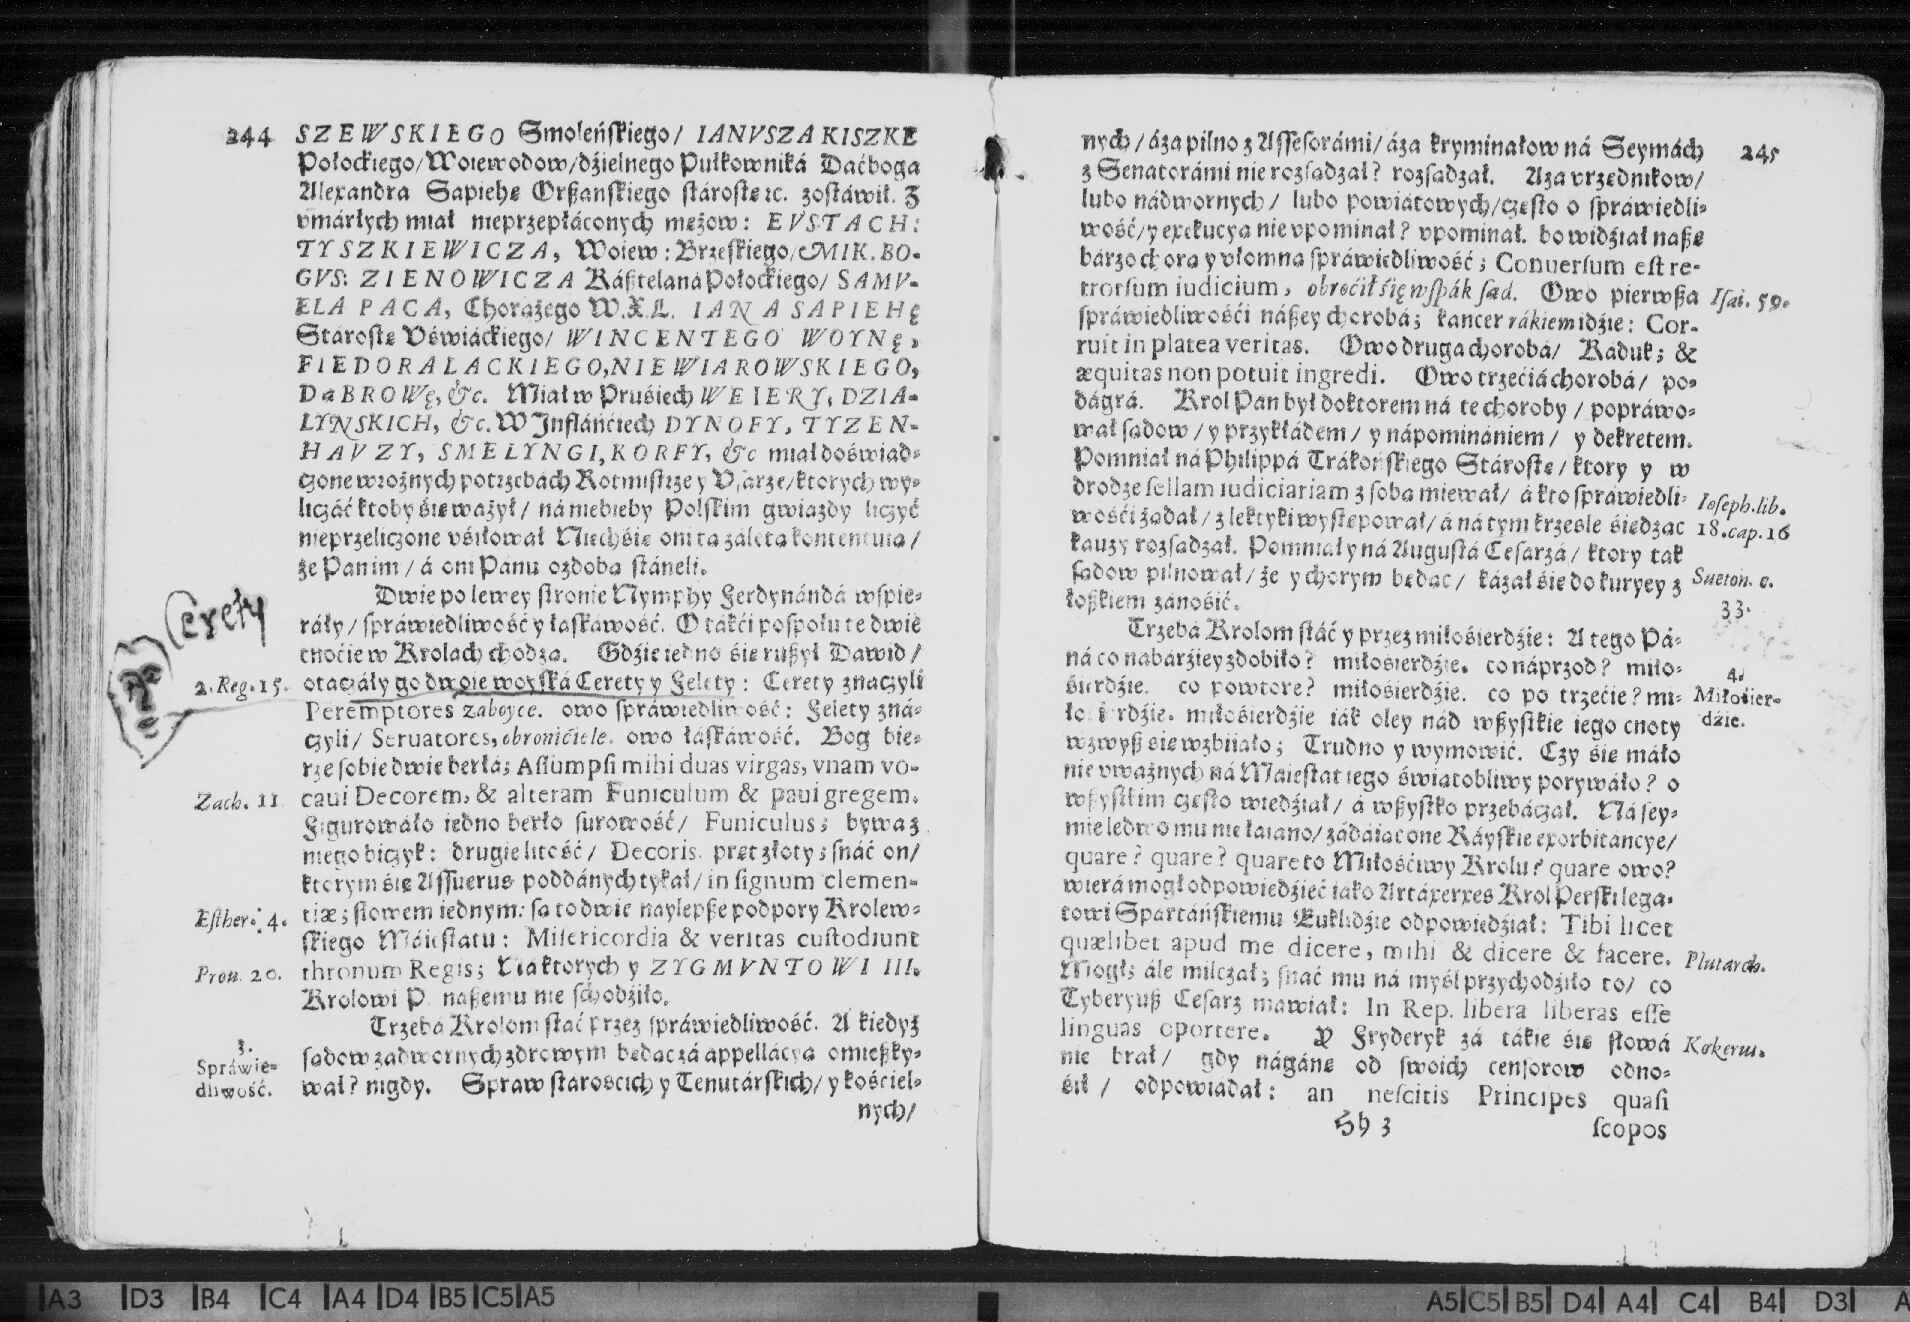 244
SZEWSKIEGO Smoleńskiego/ IANVSZA KISZKĘ
Połockiego/ Woiewodow/ dźielnego Pułkowniká Daćboga
Alexandra Sapiehę Orßanskiego stárostę ꝛc. zostáwił. Z
vmárłych miał nieprzepłáconych mężow: EVSTACH:
TYSZKIEWICZA, Woiew: Brzeskiego/ MIK. BO-
GVS: ZIENOWICZA Káßtelana Połockiego/ SAMV-
ELA PACA, Chorążego W.X.L. IANA SAPIEHĘ
Stárostę Vświáckiego/ WINCENTEGO WOYNĘ,
FIEDORA LACKIEGO, NIEWIAROWSKIEGO,
DąBROWę, &c. Miał w Pruśiech WEIERY, DZIA-
LYNSKICH, &c. W Inflánćiech DYNOFY, TYZEN-
HAVZY, SMELYNGI, KORFY, &c miał doświad-
czone w rożnych potrzebách Rotmistrze y Vsarze/ ktorych wy-
liczáć ktoby śię ważył/ ná niebieby Polskim gwiazdy liczyć
nieprzeliczone vśiłował Niech śię oni tą záletą kontentuią/
że Pan im/ á oni Panu ozdobą stáneli.
Dwie po lewey stronie Nymphy Ferdynándá wspie-
ráły/ spráwiedliwość y łáskáwość. O tákći pospołu te dwie
cnoćie w Krolach chodzą. Gdźie iedno śię rußył Dawid/
otaczáły go dwoie woyská Cerety y Felety: Cerety znaczyli
Cerety
2. Reg. 15.
Peremptores zaboyce. owo spráwiedliwość: Felety zná-
czyli/ Seruatores, obronićiele. owo łáskáwość. Bog bie-
rze sobie dwie berłá; Assumpsi mihi duas virgas, vnam vo-
Zach. 11
caui Decorem, & alteram Funiculum & paui gregem.
Figurowáło iedno berło surowość/ Funiculus; bywa z
niego biczyk: drugie litość/ Decoris. pręt złoty; snáć on/
ktorym śię Assuerus poddánych tykał/ in signum clemen-
Esther. 4.
tiæ; słowem iednym: są to dwie naylepße podpory Krolew-
skiego Máiestatu: Misericordia & veritas custodiunt
Prou. 20.
thronum Regis; Ná ktorych y ZYGMVNTOWI III.
Krolowi P. naßemu nie schodźiło.
Trzebá Krolom stać przez spráwiedliwość. A kiedyż
3.
Spráwie-
dliwość.
sądow zadwornych zdrowym będąc zá appellácyą omießky-
wał? nigdy. Spraw starośćich y Tenutárskich/ y kośćiel-
nych/
245
nych/ áza pilno z Assesorámi/ áza kryminałow ná Seymách
z Senatorámi nie rozsądzał? rozsądzał. Aza vrzędnikow/
lubo nádwornych/ lubo powiátowych/ często o spráwiedli-
wość/ y exekucyą nie vpominał? vpominał. bo widźiał naßę
bárzo chorą y vłomną spráwiedliwość; Conuersum est re-
trorsum iudicium, obroćił się wspák sąd. Owo pierwßa
Isai. 59.
spráwiedliwośći náßey chorobá; kancer rákiem idźie: Cor-
ruit in platea veritas. Owo druga chorobá/ Káduk; &
æquitas non potuit ingredi. Owo trzećia chorobá/ po-
dágrá. Krol Pan był doktorem ná te choroby/ popráwo-
wał sądow/ y przykłádem/ y nápominániem/ y dekretem.
Pomniał ná Philippá Trákońskiego Stárostę/ ktory y w
drodze sellam iudiciariam z sobą miewał/ á kto spráwiedli-
Ioseph. lib.
18. cap. 16
wośći żądał/ z lektyki występował/ á ná tym krześle śiedząc
kauzy rozsądzał. Pomniał y ná Augustá Cesarzá/ ktory tak
sądow pilnował/ że y chorym będąc/ kázał śię do kuryey z
Sueton. c.
33.
łoßkiem zánośić.
Trzebá Krolom stáć y przez miłośierdźie: A tego Pá-
ná co nabárźiey zdobiło? miłośierdźie. co náprzod? miło-
4.
Miłośier-
dźie.
śierdźie. co powtore? miłośierdźie. co po trzećie? mi-
łośierdźie. miłośierdźie iák oley nád wßystkie iego cnoty
wzwyß śię wzbiiało; Trudno y wymowić. Czy śię máło
nie vważnych ná Máiestat iego świątobliwy porywáło? o
wßystkim często wiedźiał/ á wßystko przebáczał. Ná sey-
mie ledwo mu nie łaiano/ zádáiąc one Ráyskie exorbitáncye/
quare? quare? quare to Miłośćiwy Krolu? quare owo?
wierá mogł odpowiedźieć iako Artáxerxes Krol Perski lega-
towi Spartáńskiemu Euklidźie odpowiedźiał: Tibi licet
quælibet apud me dicere, mihi & dicere & facere.
Plutarch.
Mogł; ále milczał; snać mu ná myśl przychodźiło to/ co
Tyberyuß Cesarz mawiał: In Rep. libera liberas esse
linguas oportere. Y Fryderyk zá tákie śię słowá
Kokerus.
nie brał/ gdy nágánę od swoich censorow odno-
śił/ odpowiadał: an nescitis Principes quasi
Hh 3
scopos